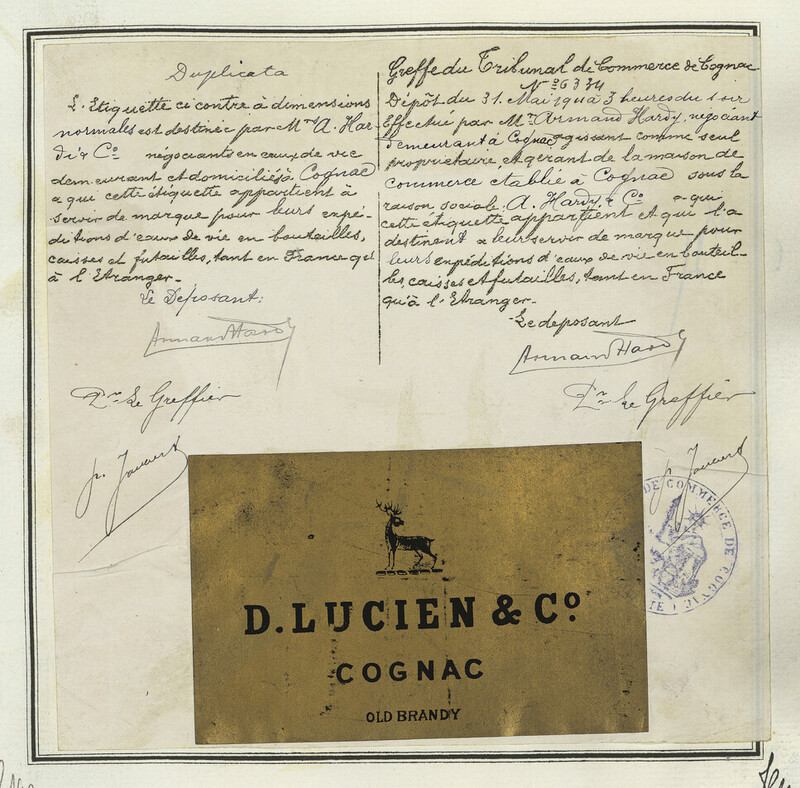 Duplicata
L'Etiquette ci contre à dimensions
normales est destinée par Mrs A. Har-
dy & Co négociants en eaux de vie
demeurant et domiciliés à Cognac
a qui cette étiquette appartient à
servir de marque pour leurs expé-
ditions d'eaux de vie en bouteilles,
caisses et futailles, tant en France qu'
à l'Etranger.
Le Déposant:
Armand Hardy
Pr Le Greffier
Greffe du Tribunal de Commerce de Cognac
No 6334
Dépôt du 31. Mai à 3 heures du soir
Effectué par Mr Armand Hardy, négociant
demeurant à Cognac agissant comme seul
propriétaire et gérant de la maison de
commerce etablie à Cognac sous la
raison sociale. A. Hardy & Co a qui
cette étiquette appartient et qui l'a
destinent a leur servir de marque pour
leurs expéditions d'eaux de vie en bouteil-
les, caisses et futailles, tant en France
qu'à l'Etranger.
Le deposant
Armand Hardy
Pr Le Greffier
DE COMMERCE DE COGNAC
D. LUCIEN & Co.
COGNAC
OLD BRANDY